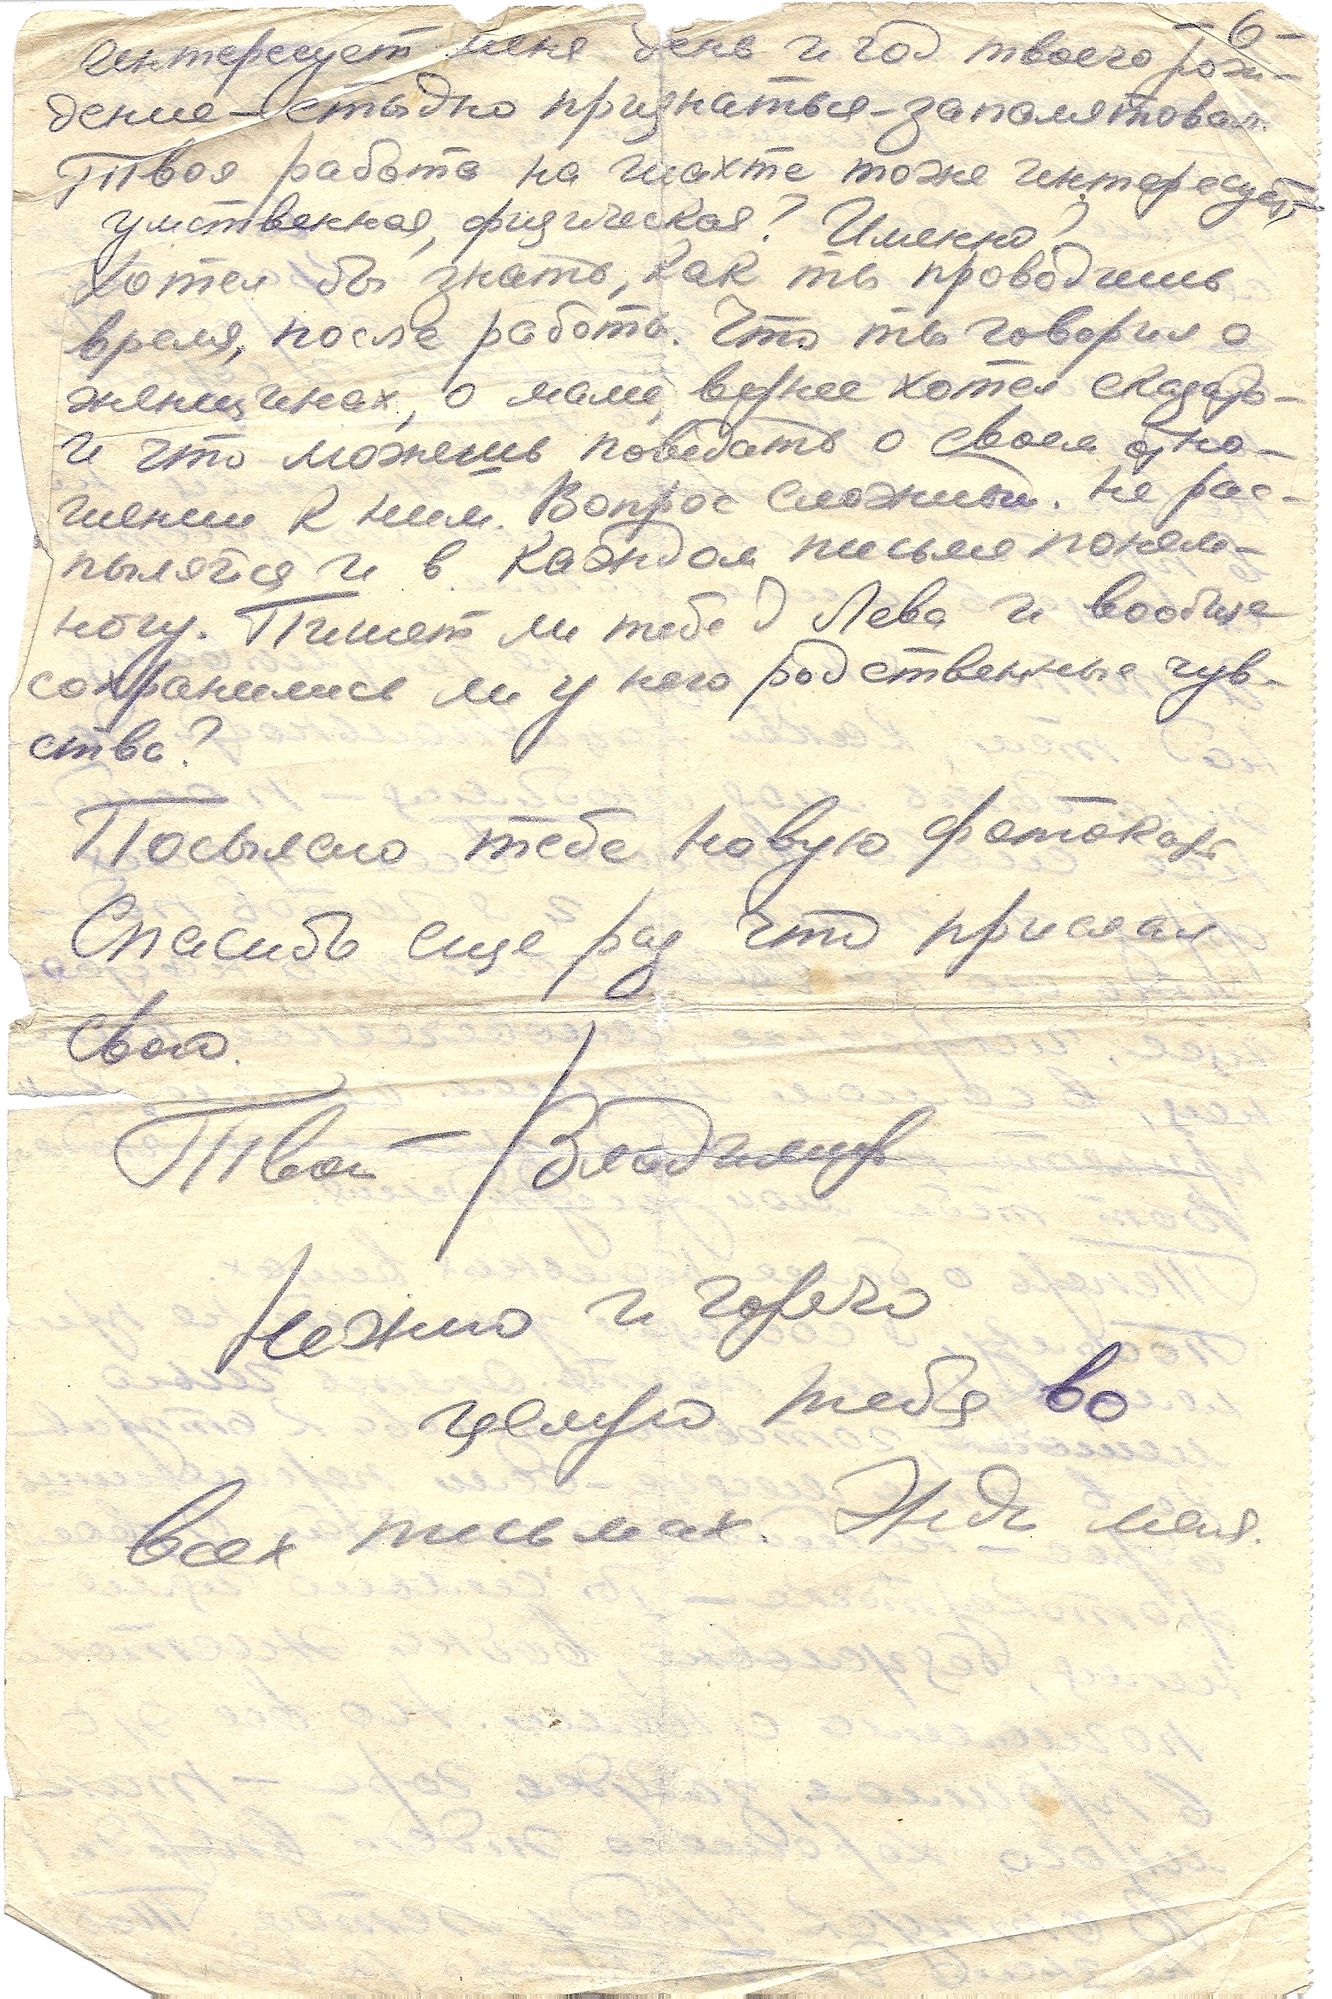 -6-
интересует меня день и год твоего рож-
дение - стыдно признаться - запамятовал.
Твоя работа на шахте тоже интересует, -
умственная, физическая? Именно?
Хотел бы знать, как ты проводишь
время, после работы. Что ты говорил о
женщинах, о маме, вернее хотел сказать -
и что можешь поведать о своем отно-
шении к ним. Вопрос сложный. Не рас-
пыляйся и в каждом письме понем-
ногу. Пишет ли тебе Лева и вообще
сохранились ли у него родственные чув-
ства?
Посылаю тебе новую фотокарт.
Спасибо еще раз что прислал
свою.
Твой - Владимир
Нежно и горячо
целую тебя во
всех письмах. Жди меня.